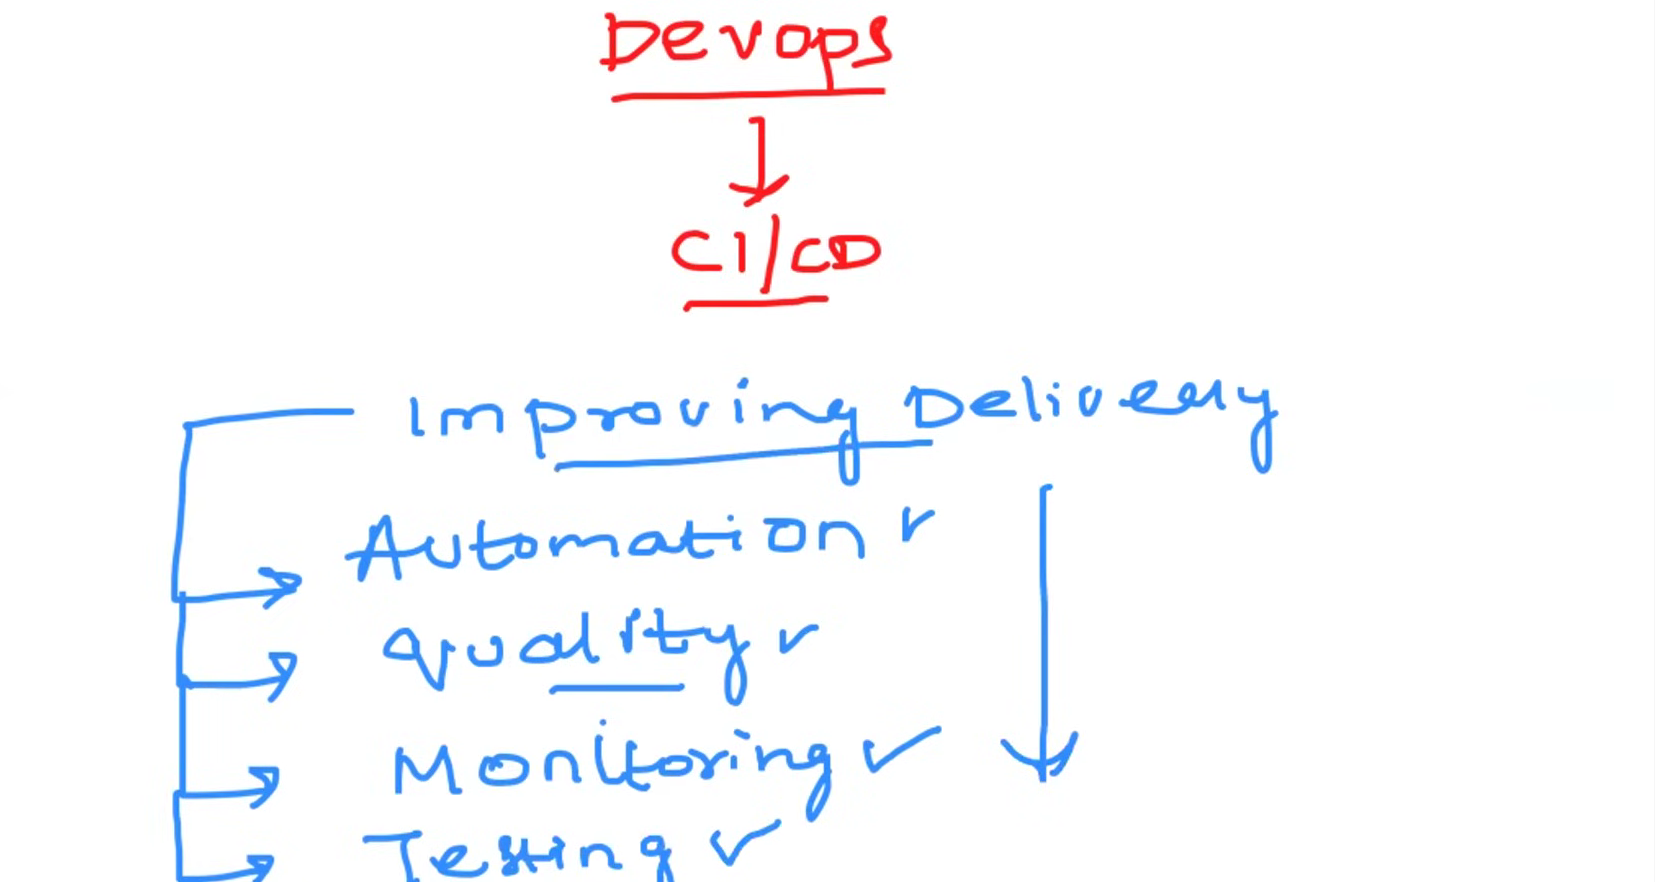 Devops
CI/CD
Improving Delivery
Automation ✓
Quality ✓
Monitoring ✓
Testing ✓